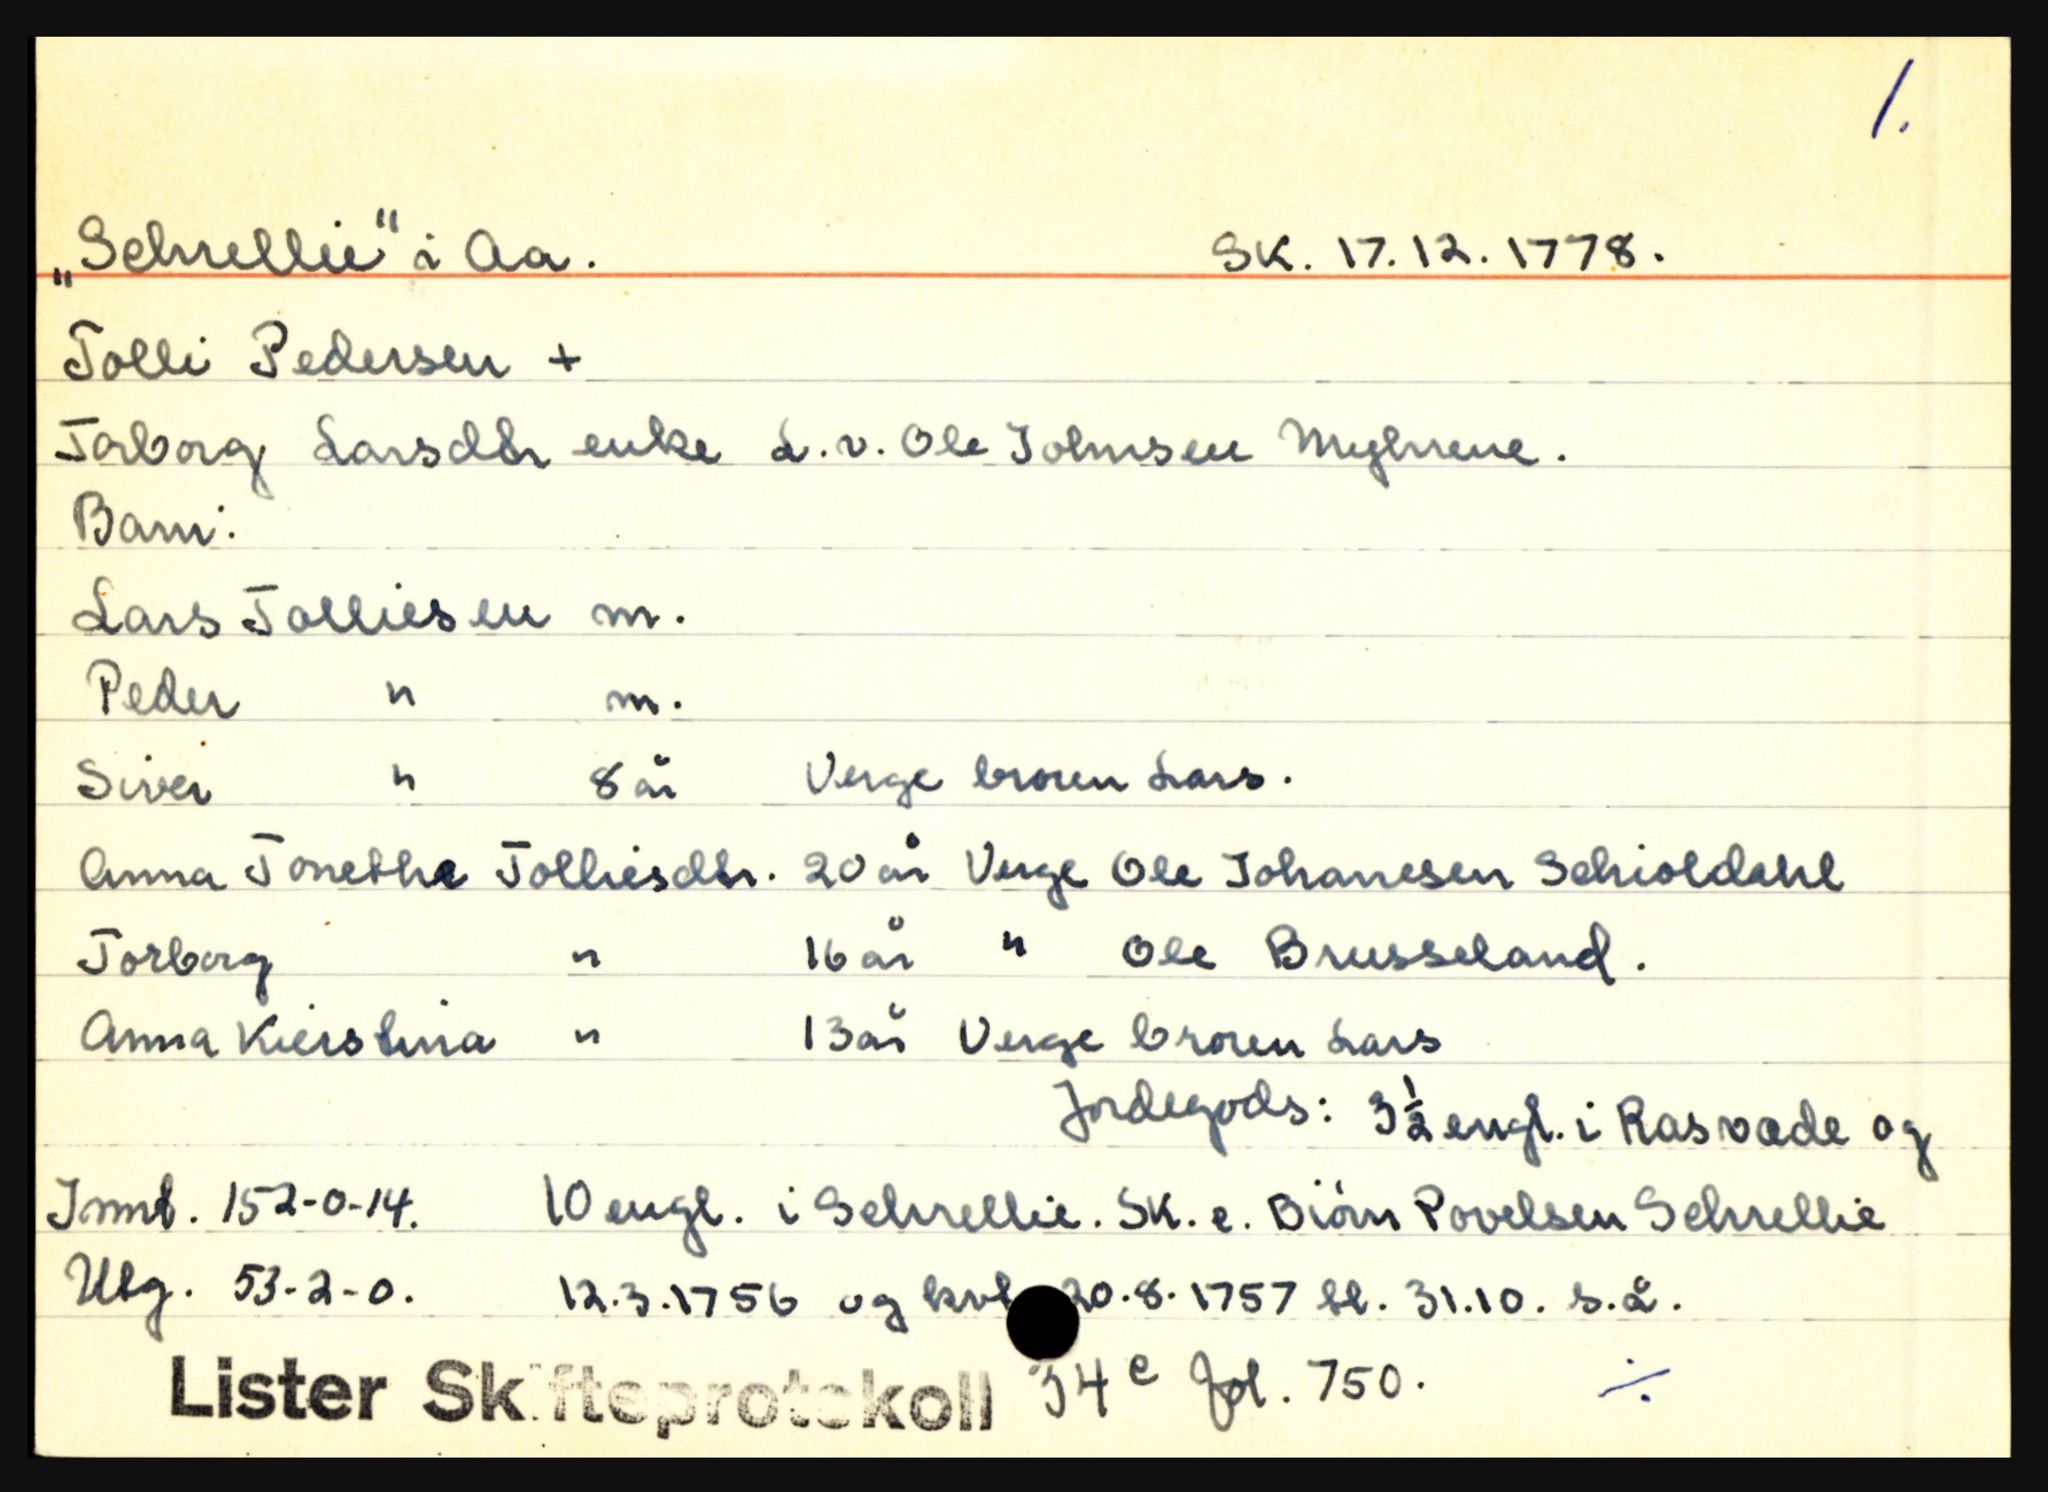 1.
„Schrellie" i Aa. SK. 17.12.1778.
Tolli Pedersen +
Torborg Larsdtr enke L.v. Ole Johnsen Myhrene.
Barn:
Lars Tolliesen m.
Peder " m.
Siver " 8 år Verge broren Lars.
Anna Tonethe Tolliesdtr. 20 år Verge Ole Johanesen Schioldahl
Torborg " 16 år " Ole Brusseland.
Anna Kierstina " 13 år Verge broren Lars
Jordegods: 3½ engl. i Rasvode og
Innt. 152-0-14. 10 engl. i Schrellie. SK. e. Biörn Povelsen Schrellie
Utg. 53-2-0. 12.3.1756 og kvt 20.8.1757 tl. 31.10. s.å.
Lister Skifteprotokoll 34 c fol. 750. ./.